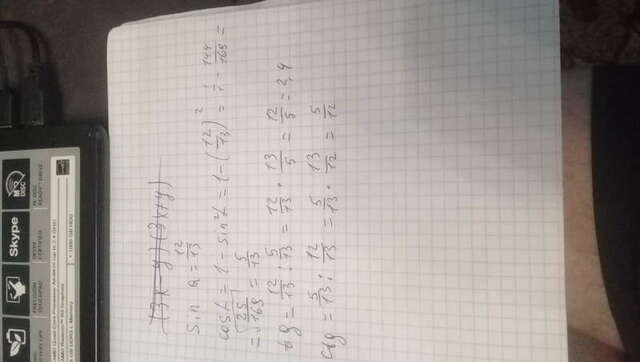 Skype
M-DISC
(3x-y)(3x+y)
sin α = 12/13
cos L = 1 - sin²L = 1 - (12/13)² = 1/1 - 144/169 =
= √25/169 = 5/13
tg = 12/13 : 5/13 = 12/13 · 13/5 = 12/5 = 2,4
ctg = 5/13 : 12/13 = 5/13 · 13/12 = 5/12